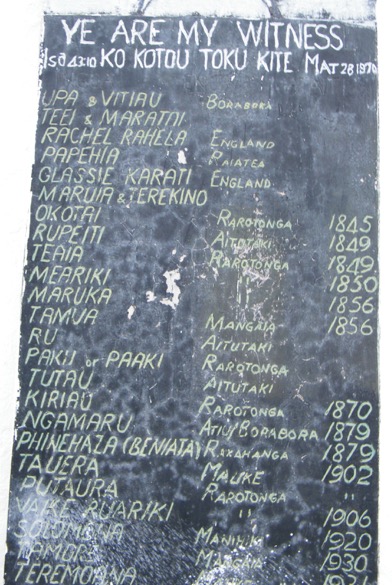 YE ARE MY WITNESS
ISA 43:10 KO KOTOU TOKU KITE MAT 28 1920
UPA & VITIAU BORABORA
TEEI & MARATAI
RACHEL RAHELA ENGLAND
PAPEHIA RAIATEA
GLASSIE KARATI ENGLAND
MARUIA & TEREKINO
OKOTAI RAROTONGA 1845
RUPEITI AITUTAKI 1849
TEAIA RAROTONGA 1849
MEARIKI 1850
MARUKA 1856
TAMUA MANGAIA 1856
RU AITUTAKI
PAKU or PAAKI RAROTONGA
TUTAU AITUTAKI
KIRIAU RAROTONGA 1870
NGAMARU ATIU/BORABORA 1879
PHINEHAZA (BENIATA) RAKAHANGA 1879
TAUERA MAUKE 1902
PUTAURA RAROTONGA "
VAIKE RUARIKI " 1906
SOLOMONA 1920
MANGAIA 1930
TEREMOANA